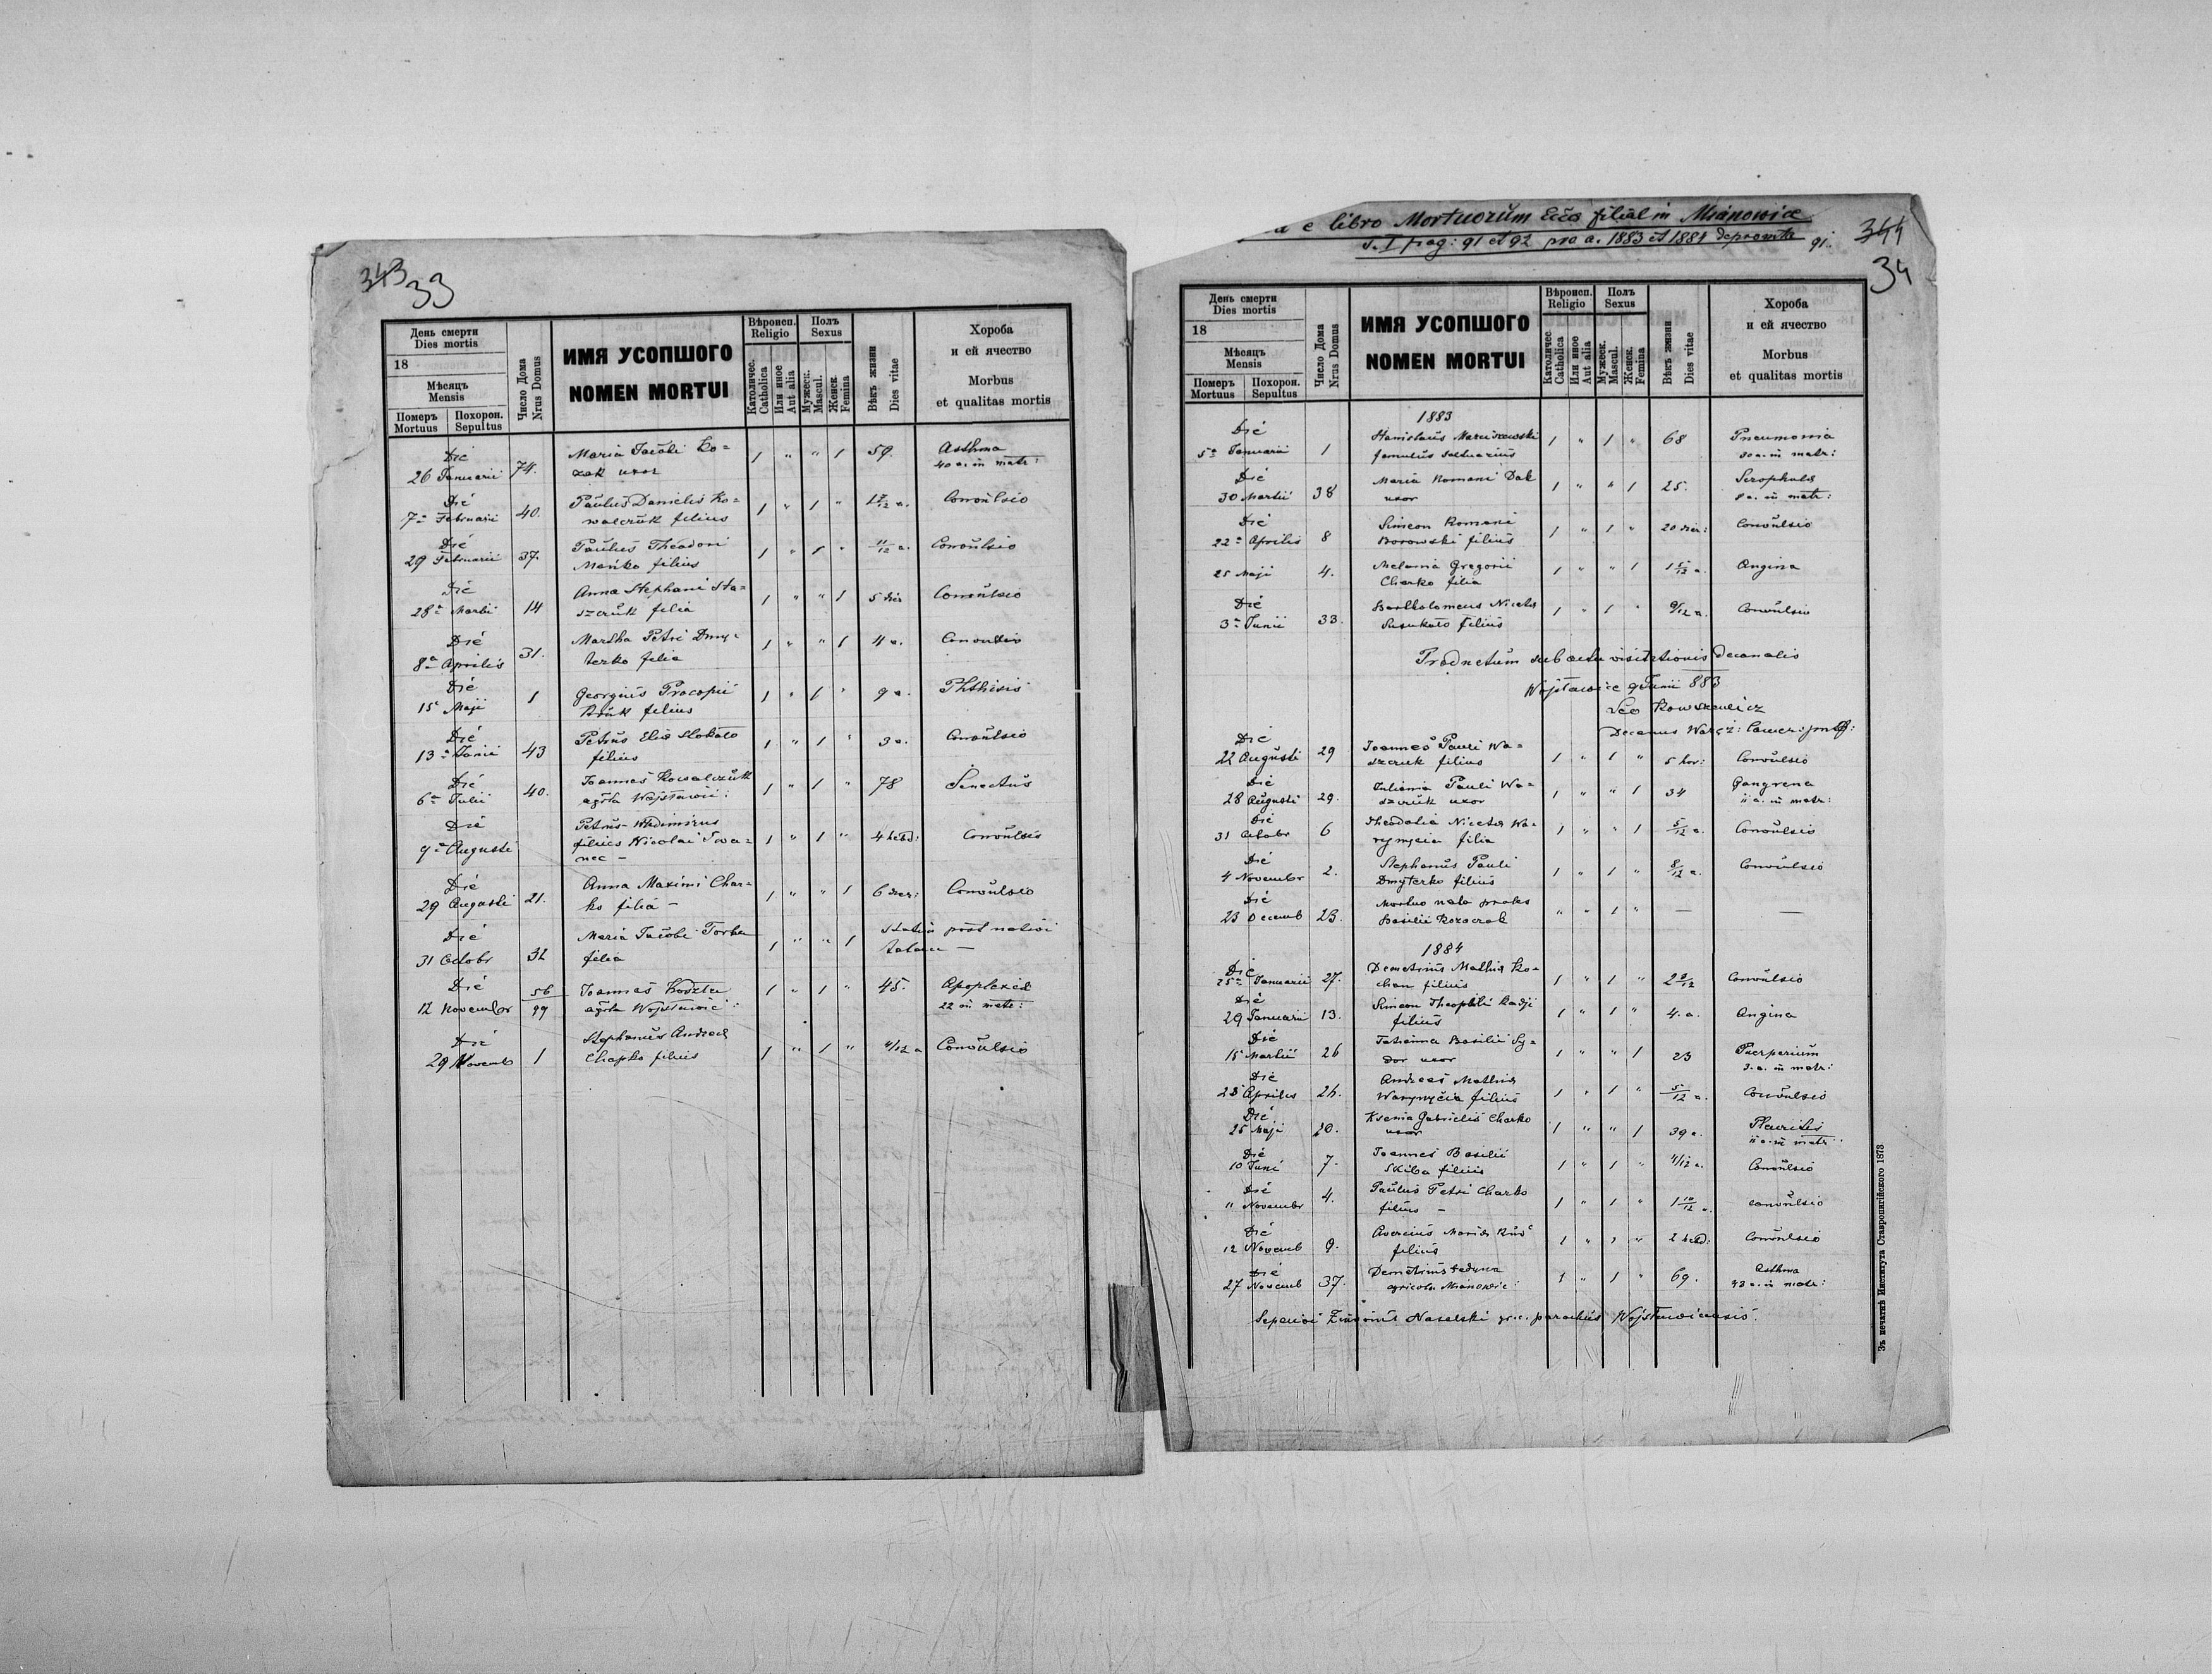 343 33
День смерти
Dies mortis
18
Мѣсяцъ
Mensis
Померъ Похорон.
Mortuus Sepultus
Число Дома
Nrus Domus
ИМЯ УСОПШОГО
NOMEN MORTUI
Вѣроисп.
Religio
Католичес.
Catholica
Или иное
Aut alia
Полъ
Sexus
Мужеск.
Mascul.
Женск.
Femina
Вѣкъ жизни
Dies vitae
Хороба
и ей ячество
Morbus
et qualitas mortis
Die
26 Januarii 74. Maria Jacobi Ko=
zak uxor 1 " " 1 59. Asthma
40 a. in matr:
Die
7a Februarii 40. Paulus Danielis Ko=
walczuk filius 1 " 1 " Convulsio
Die
29 Februarii 37. Paulus Theodori
Mańko filius 1 " 1 " 11/12 a. Convulsio
Die
28a Martii 14 Anna Stephani Sta=
szczuk filia 1 " " 1 5 dies Convulsio
Die
8a Aprilis 31. Martha Petri Dmy=
terko filia 1 " " 1 4 a. Convulsio
Die
15 Maji 1 Georgius Procopii
filius 1 " 1 " 9 a. Phthisis
Die
13a Junii 43 Petrus Elia Sloboto
filius 1 " 1 " 3 a. Convulsio
Die
6a Julii 40. Joannes Kowalczuk
agrla Wojsławic: 1 " 1 " 78 Senectus
Die
9a Augusti Petrus-Wladimirus
filius Nicolai Iwa=
nec - 1 " 1 " 4 hebd: Convulsio
Die
29 Augusti 21. Anna Maximi Char=
ko filia - 1 " " 1 6 dier: Convulsio
Die
31 Octobr 32 Maria Jacobi
filia 1 " " 1 Statim post nativi
tatem -
Die
12 Novembr 56/99 Joannes
agrla Wojsławic: 1 " 1 " 45. Apoplexia
22 in matr:
Die
29 Novemb 1 Stephanus Andreae
Chapko filius 1 " 1 " Convulsio
e libro Mortuorum Eccla filial in Mianowice
T. I pag: 91 et 92 pro a. 1883 et 1884 deprompta 91. 344
34
День смерти
Dies mortis
18
Мѣсяцъ
Mensis
Померъ Похорон.
Mortuus Sepultus
Число Дома
Nrus Domus
ИМЯ УСОПШОГО
NOMEN MORTUI
Вѣроисп.
Religio
Католичес
Catholica
Или иное
Aut alia
Полъ
Sexus
Мужеск.
Mascul.
Женск.
Femina
Вѣкъ жизни
Dies vitae
Хороба
и ей ячество
Morbus
et qualitas mortis
1883
Die
5a Januarii 1 Stanislaus Marciszewski
famulus saltuarius 1 " 1 " 68 Pneumonia
30 a. in matr:
Die
30 Martii 38 Maria Romani Dak
uxor 1 " " 1 25. Scrophula
8 a. in matr:
Die
22a Aprilis 8 Simeon Romani
Borowski filius 1 " 1 " 20 dier: Convulsio
25 Maji 4. Melania Gregorii
Charko filia 1 " " 1 1 5/12 a. Angina
Die
3a Junii 33. Bartholomeus Niceta
filius 1 " 1 " 9/12 a. Convulsio
Productum sub actu visitationis decanalis
Wojsławice 9 Junii 883
Leo
Decanus
Die
22 Augusti 29 Joannes Pauli Wa=
szczuk filius 1 " 1 " 5 hor: Convulsio
Die
28 Augusti 29. Juliania Pauli Wa=
szczuk uxor 1 " " 1 34 Gangrena
11 a. in matr:
Die
31 Octobr 6 Theodosia Niceta Wa=
rymycia filia 1 " " 1 5/12 a. Convulsio
Die
4 Novembr 2. Stephanus Pauli
Dmyterko filius 1 " 1 " 8/12 a. Convulsio
Die
23 Decemb 23. Mortuo nata proles
Basilii Kozaczok " " 1 " — —
1884
Die
25a Januarii 27. Demetrius Mathia Ko=
chan filius 1 " 1 " 2 9/12 Convulsio
Die
29 Januarii 13. Simeon Theophili Kadji
filius 1 " 1 " 4. a. Angina
Die
15 Martii 26 Tatianna Basilii Sy=
dor uxor 1 " " 1 23 Puerperium
3. a. in matr:
Die
28 Aprilis 24. Andreas Mathia
Warymycia filius 1 " 1 " 5/12 a. Convulsio
Die
25 Maji 20. Ksenia Gabrielis Charko
uxor 1 " " 1 39 a. Pleuritis
11 a. in matr
Die
10 Juni 7. Joannes Basilii
Skiba filius 1 " 1 " Convulsio
Die
11 Novembr 4. Paulus Petri Charko
filius - 1 " 1 " 1 10/12 a. convulsio
Die
12 Novemb 9. Maria
filius 1 " 1 " 2 hebd: Convulsio
Die
27 Novemb 37. Demetrius Fedyna
agricola Mianowic: 1 " 1 " 69. Asthma
43 a. in matr:
Nasalski gr. c. parochus Wojsławicensis.
Зъ печатнѣ Института Ставропигійского 1873